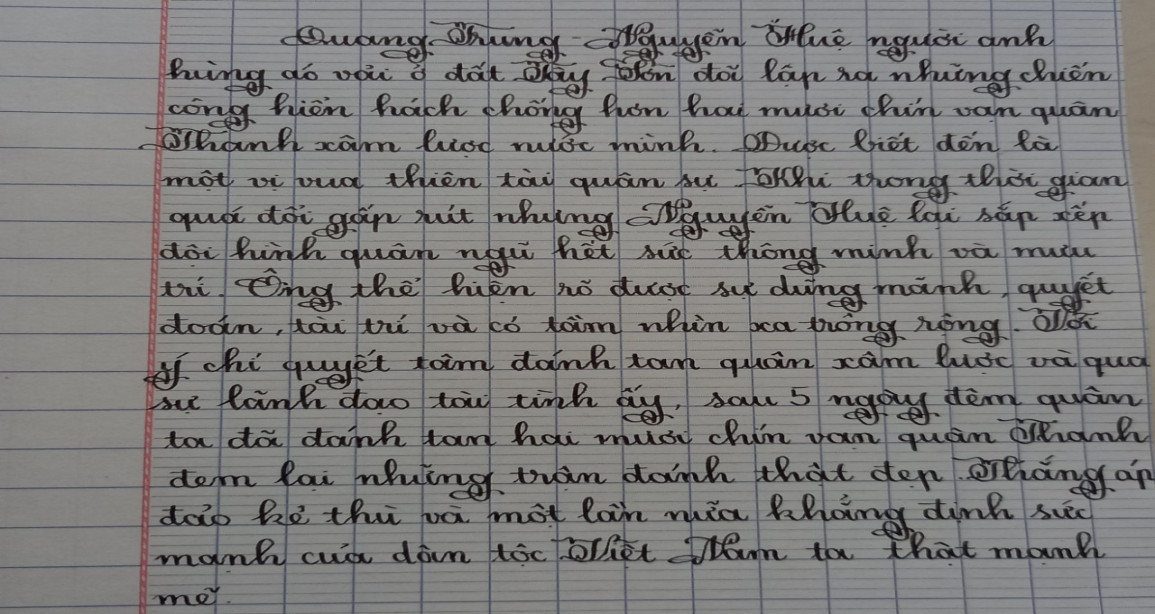 Quang Trung - Nguyễn Huệ người anh
hùng áo vải ở đất Tây Sơn đời lập ra những chiến
công hiển hách chống hơn hai mươi chín vạn quân
Thanh xâm lược nước mình. Được biết đến là
một vị vua thiên tài quân sự. Khi trong thời gian
quá đỗi gấp rút nhưng Nguyễn Huệ lại sắp xếp
đội hình quân ngũ hết sức thông minh và mưu
trí. Ông thể hiện rõ được sự dũng mãnh, quyết
đoán, tài trí và có tầm nhìn xa trông rộng. Với
ý chí quyết tâm đánh tan quân xâm lược và qua
sự lãnh đạo tài tình ấy, sau 5 ngày đêm quân
ta đã đánh tan hai mươi chín vạn quân Thanh
đem lại những trận đánh thật đẹp. Thắng áp
đảo kẻ thù và một lần nữa khẳng định sức
mạnh của dân tộc Việt Nam ta thật mạnh
mẽ.